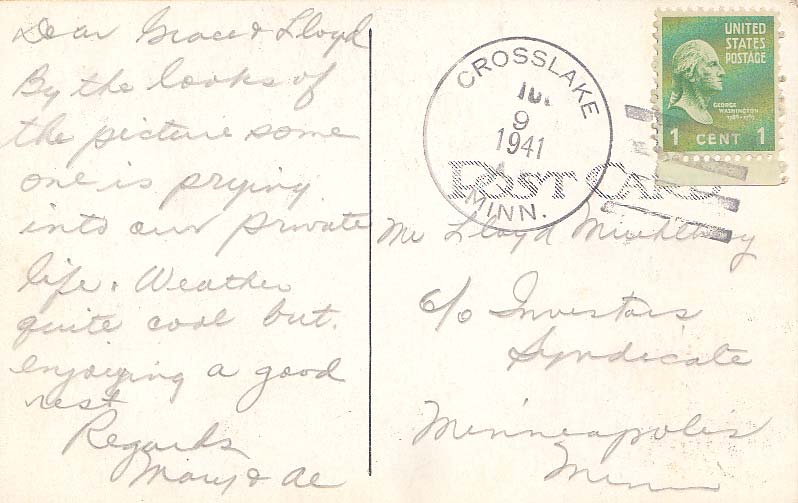 Dear Grace & Lloyd
By the looks of
the picture some
one is prying
into our private
life. Weather
quite cool but.
enjoying a good
rest
Regards
Mary & Al
CROSSLAKE
9
1941
MINN.
UNITED
STATES
POSTAGE
GEORGE
WASHINGTON
1 CENT 1
POST CARD
Mr Lloyd
c/o Investors
Syndicate
Minneapolis
Minn